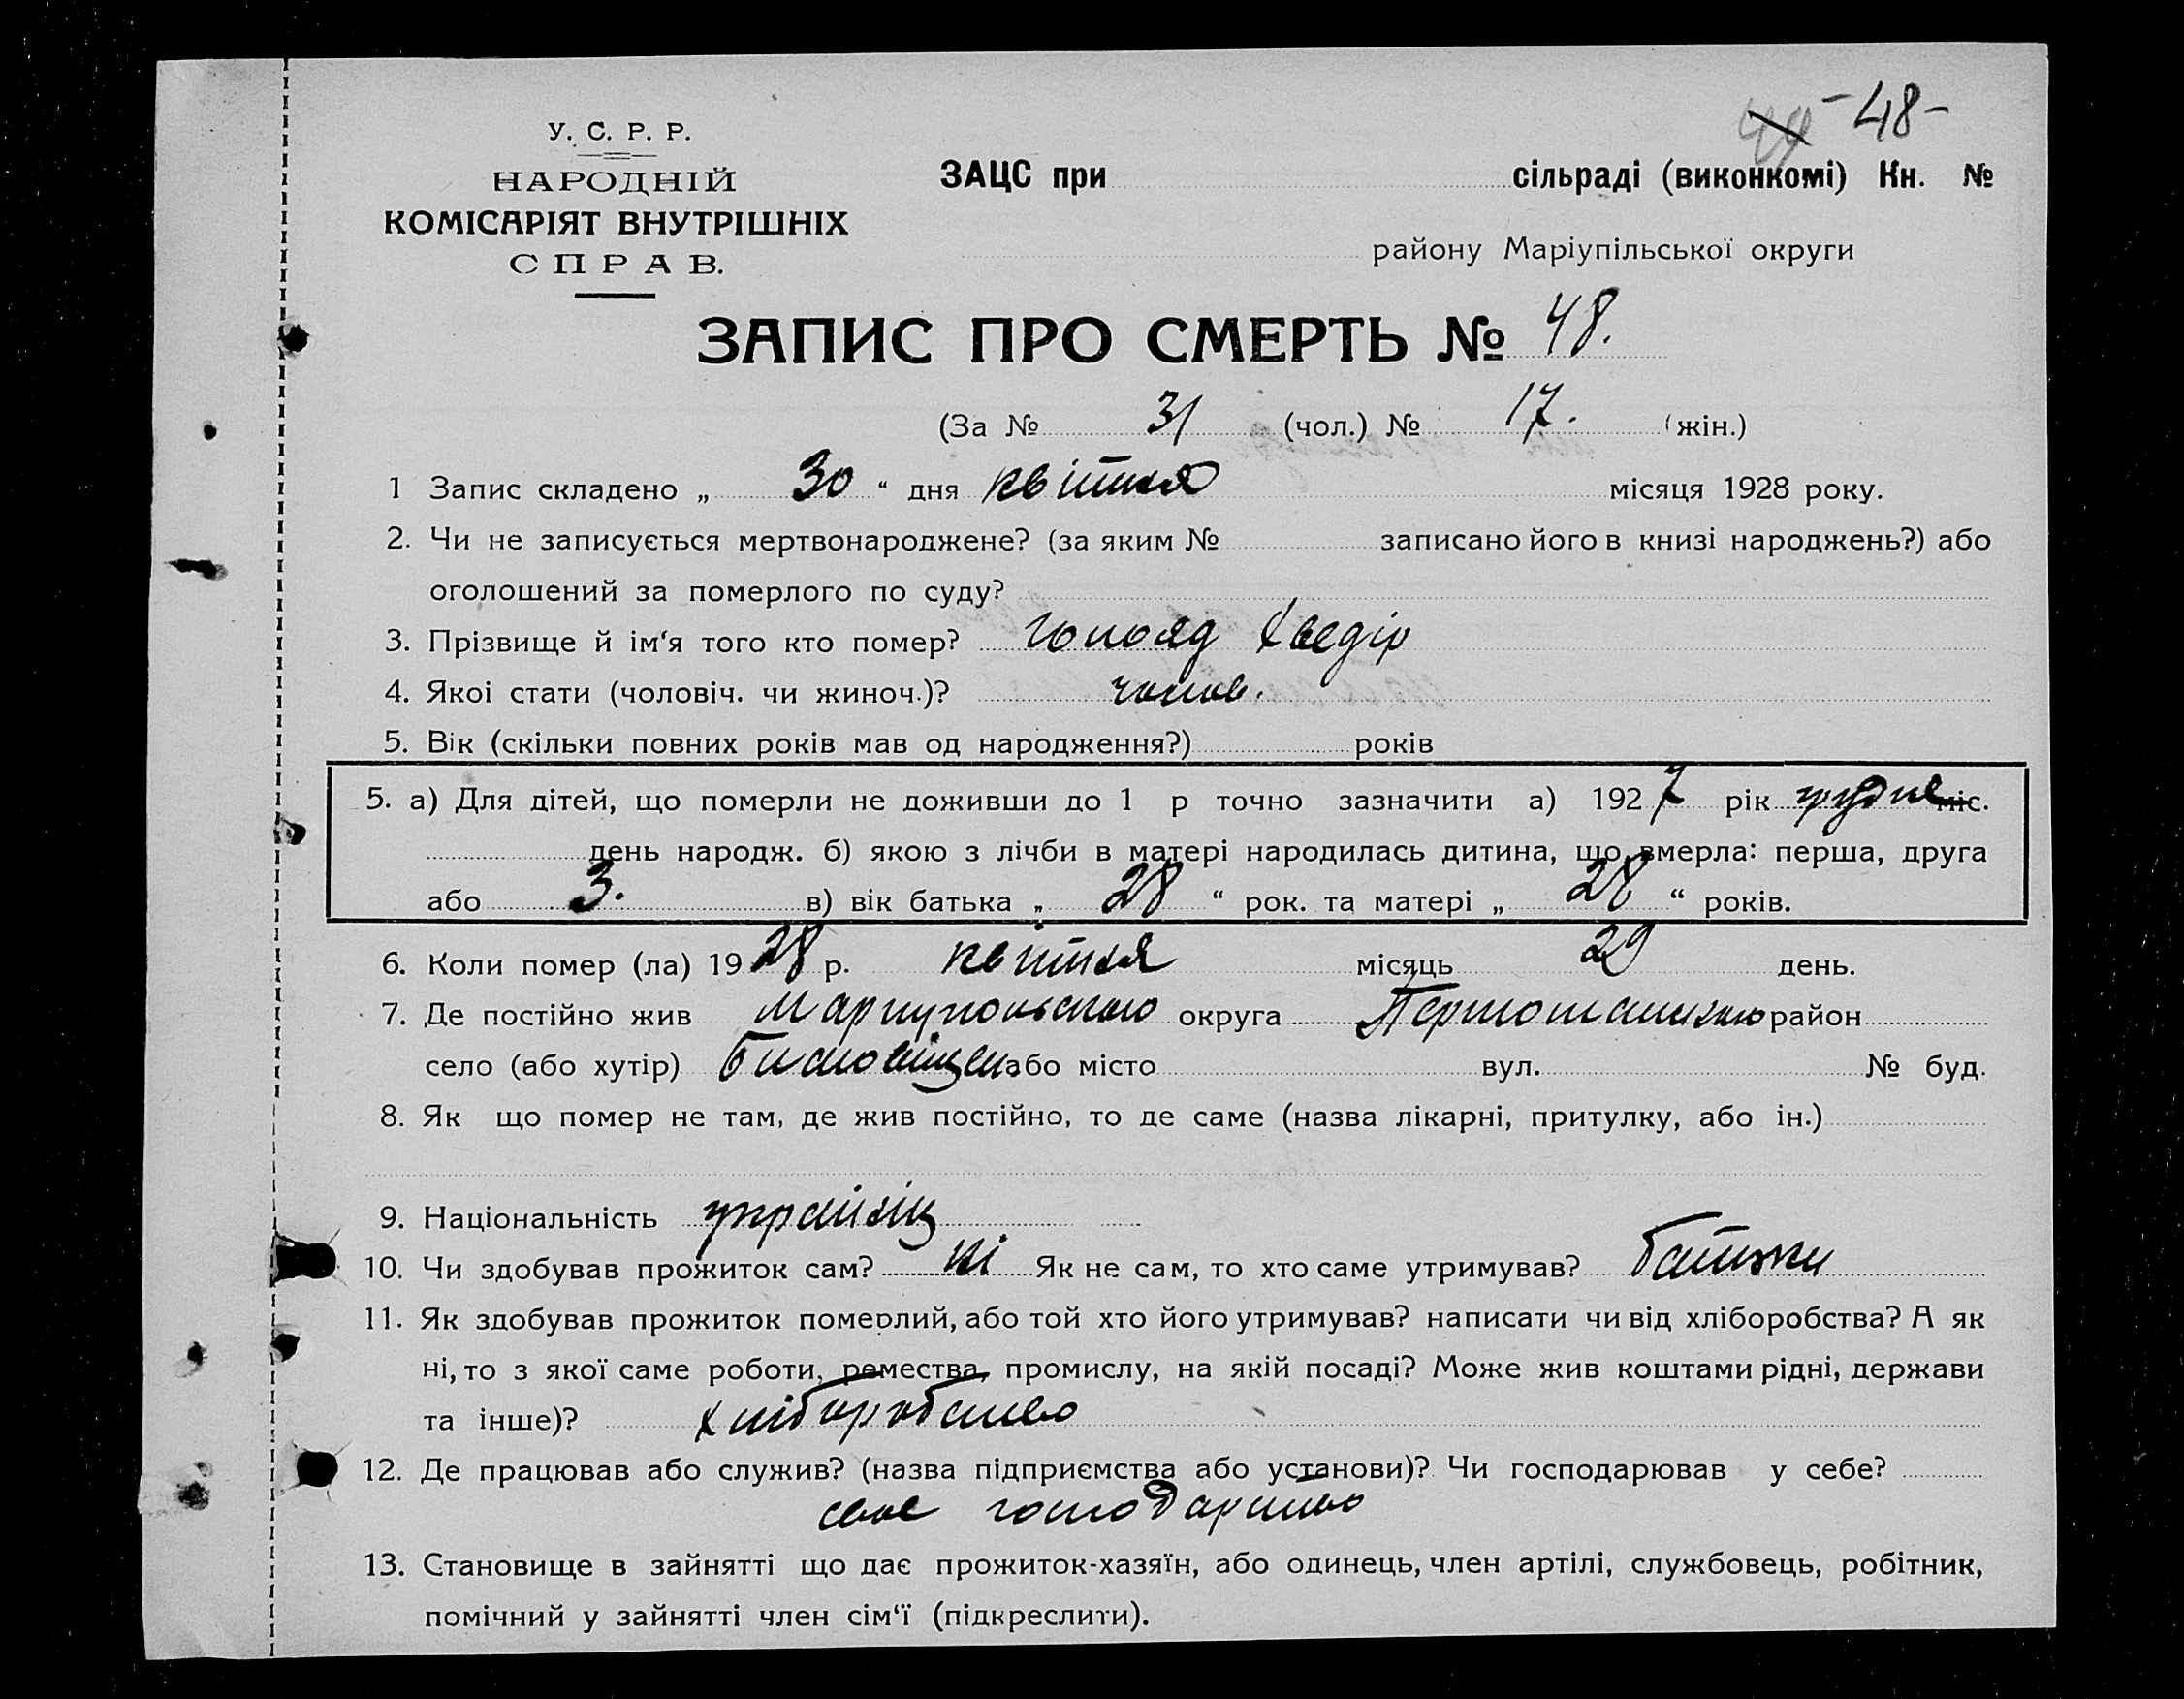 48 -
У. С. Р. Р.
НАРОДНІЙ
КОМІСАРІЯТ ВНУТРІШНІХ
СПРАВ.
ЗАЦС при сільраді (виконкомі) Кн. №
району Маріупільської округи
ЗАПИС ПРО СМЕРТЬ № 48.
(За № 31 (чол.) № 17. (жін.)
1 Запис складено „ 30 “ дня квітня місяця 1928 року.
2. Чи не записується мертвонароджене? (за яким № записано його в книзі народжень?) або
оголошений за померлого по суду?
3. Прізвище й ім‘я того кто помер? Хведір
4. Якоі стати (чоловіч. чи жиноч.)? чолов.
5. Вік (скільки повних років мав од народження?) років
5. а) Для дітей, що померли не доживши до 1 р точно зазначити а) 1927 рік грудне міс.
день народж. б) якою з лічби в матері народилась дитина, що вмерла: перша, друга
або 3. в) вік батька „ 28 “ рок. та матері „ 28 “ років.
6. Коли помер (ла) 1928 р. квітня місяць 29 день.
7. Де постійно жив округа район
село (або хутір) або місто вул. № буд.
8. Як що помер не там, де жив постійно, то де саме (назва лікарні, притулку, або ін.)
9. Національність україніц
10. Чи здобував прожиток сам? ні Як не сам, то хто саме утримував? батьки
11. Як здобував прожиток померлий, або той хто його утримував? написати чи від хліборобства? А як
ні, то з якої саме роботи, ремества, промислу, на якій посаді? Може жив коштами рідні, держави
та інше)? хліборобство
12. Де працював або служив? (назва підприємства або установи)? Чи господарював у себе?
своє господарство
13. Становище в зайнятті що дає прожиток-хазяїн, або одинець, член артілі, службовець, робітник,
помічний у зайнятті член сім‘ї (підкреслити).